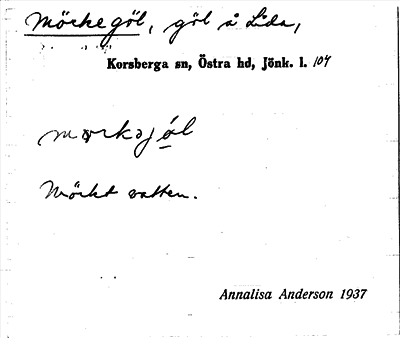 Mörkegöl, göl å Lida,
Korsberga sn, Östra hd, Jönk. l. 104
Mörkt vatten.
Annalisa Anderson 1937